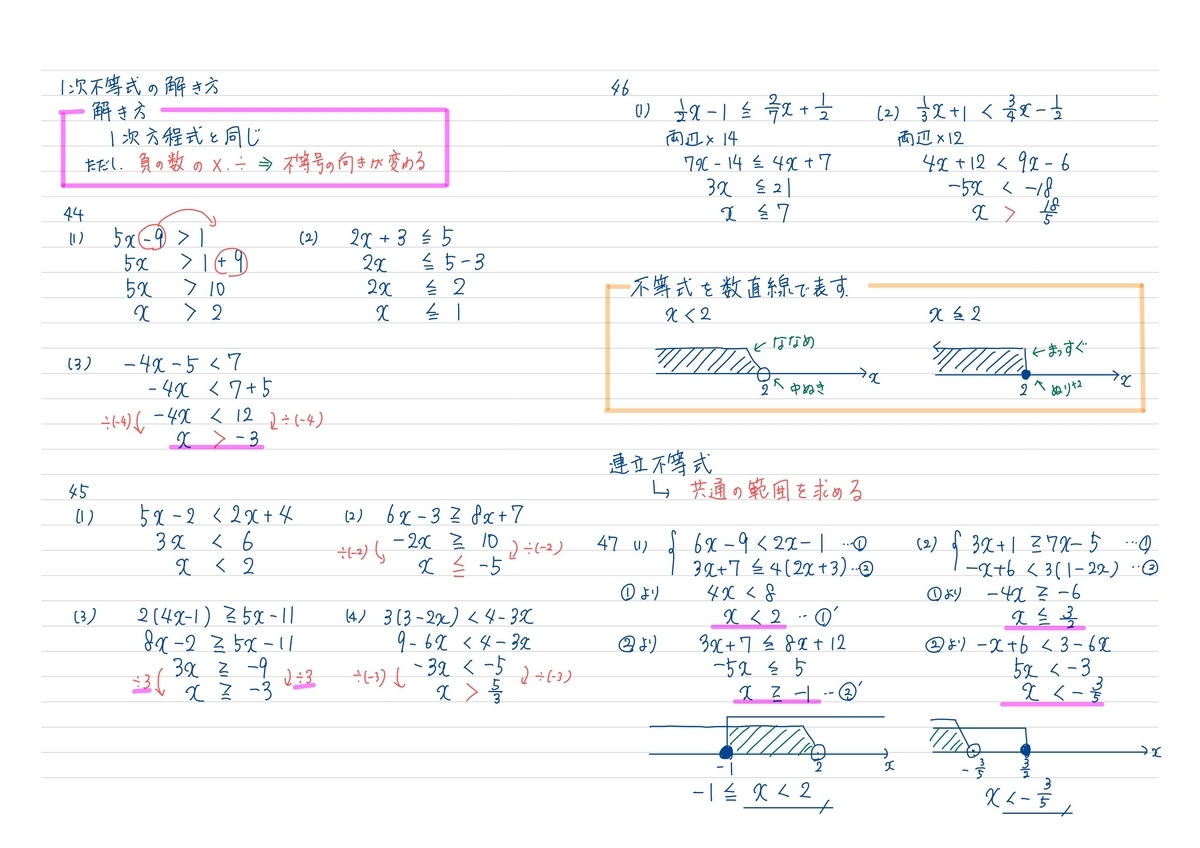 1次不等式の解き方
解き方
1次方程式と同じ
ただし、負の数の×.÷ ⇒ 不等号の向きが変める
44
(1) 5x-9 > 1
5x > 1+9
5x > 10
x > 2
(2) 2x+3 ≦ 5
2x ≦ 5-3
2x ≦ 2
x ≦ 1
(3) -4x-5 < 7
-4x < 7+5
÷(-4) -4x < 12 ÷(-4)
x > -3
45
(1) 5x-2 < 2x+4
3x < 6
x < 2
(2) 6x-3 ≧ 8x+7
÷(-2) -2x ≧ 10 ÷(-2)
x ≦ -5
(3) 2(4x-1) ≧ 5x-11
8x-2 ≧ 5x-11
÷3 3x ≧ -9 ÷3
x ≧ -3
(4) 3(3-2x) < 4-3x
9-6x < 4-3x
÷(-3) -3x < -5 ÷(-3)
x > 5/3
46
(1) 1/2x-1 ≦ 2/7x+1/2
両辺×14
7x-14 ≦ 4x+7
3x ≦ 21
x ≦ 7
(2) 1/3x+1 < 3/4x-1/2
両辺×12
4x+12 < 9x-6
-5x < -18
x > 18/5
不等式を数直線で表す
x < 2
ななめ
2 中ぬき x
x ≦ 2
まっすぐ
2 ぬり x
連立不等式
↳ 共通の範囲を求める
47 (1) { 6x-9 < 2x-1 …①
3x+7 ≦ 4(2x+3) …②
①より 4x < 8
x < 2 …①′
②より 3x+7 ≦ 8x+12
-5x ≦ 5
x ≧ -1 …②′
-1 2 x
-1 ≦ x < 2
(2) { 3x+1 ≧ 7x-5 …①
-x+6 < 3(1-2x) …②
①より -4x ≧ -6
x ≦ 3/2
②より -x+6 < 3-6x
5x < -3
x < -3/5
-3/5 3/2 x
x < -3/5